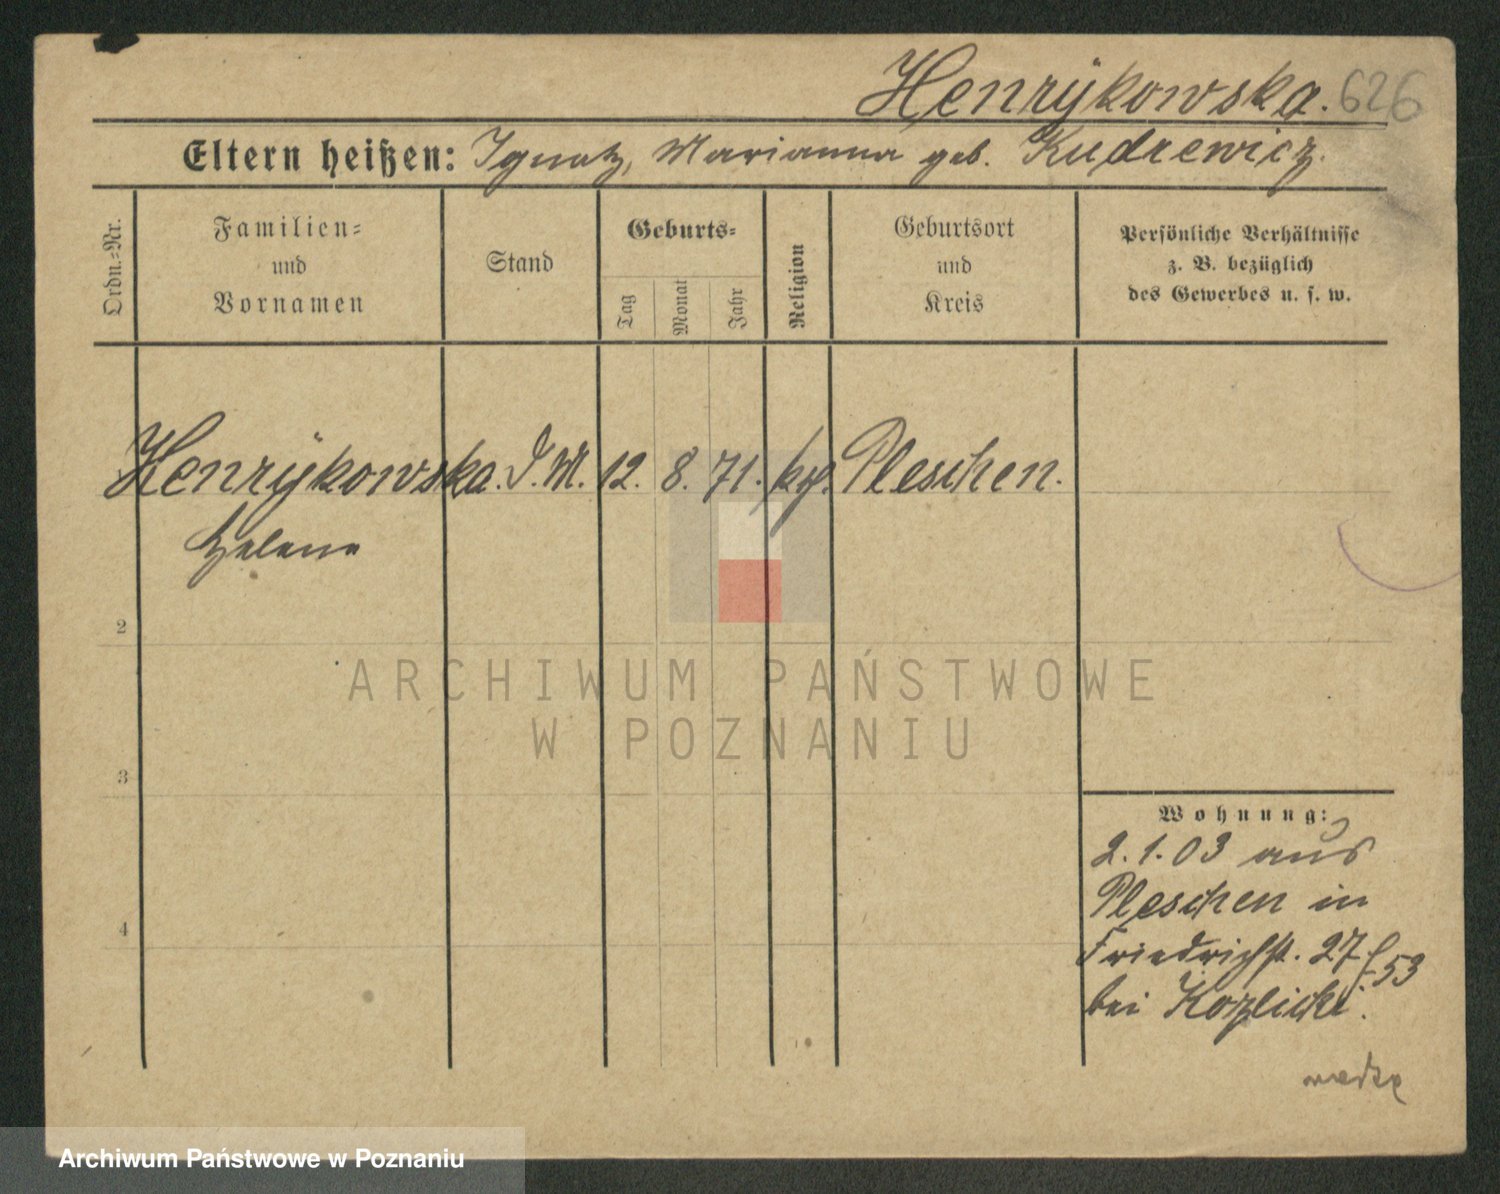 Henrÿkowska. 626
Eltern heißen: Ignatz, Marianna geb. Kudrewicz.
Ordn.-Nr.
Familien-
und
Vornamen
Stand
Geburts-
Tag
Monat
Jahr
Religion
Geburtsort
und
Kreis
Persönliche Verhältnisse
z. B. bezüglich
des Gewerbes u. s. w.
Henrÿkowska. D. M. 12. 8. 71. kg. Pleschen.
Helene
2
3
4
Wohnung:
2.1.03 aus
Pleschen in
Friedrichst. 27 f 53
bei Kozlicki.
ARCHIWUM PAŃSTWOWE
W POZNANIU
Archiwum Państwowe w Poznaniu